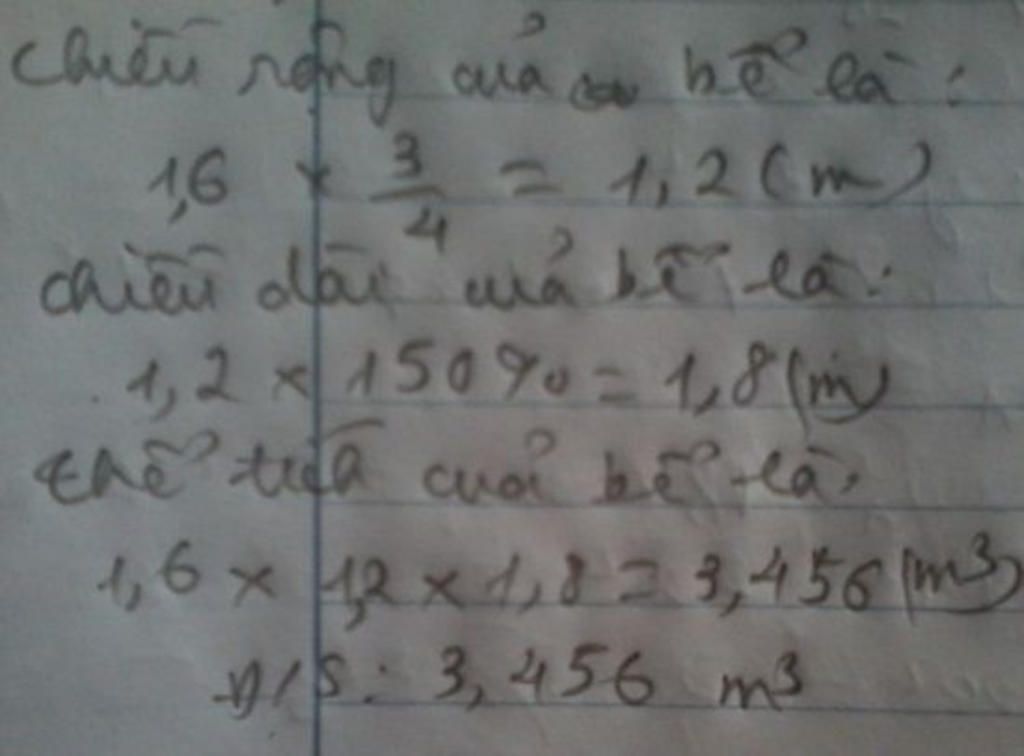 Chiều rộng của bể là:
1,6 × 3/4 = 1,2 (m)
chiều dài của bể là:
1,2 × 150% = 1,8 (m)
thể tích của bể là:
1,6 × 1,2 × 1,8 = 3,456 (m³)
Đ/S: 3,456 m³